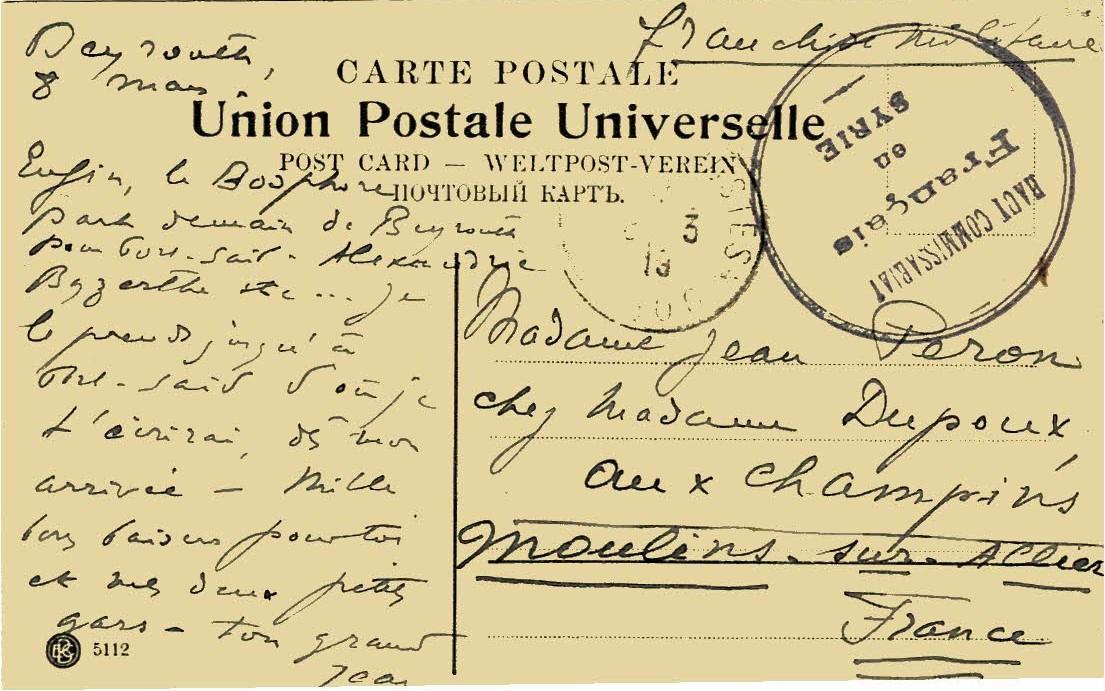 Franchise Militaire
Beyrouth,
8 mars
CARTE POSTALE
Union Postale Universelle
POST CARD — WELTPOST-VEREIN
ПОЧТОВЫЙ КАРТЪ.
Enfin, le Bosphore
part demain de Beyrouth
pour Port-Saïd - Alexandrie
Byzerthe etc... Je
le prends jusqu'à
Port-Saïd d'où je
t'écrirai, dès mon
arrivée - Mille
bons baisers pour toi
et mes deux petits
gars - ton grand
Jean
5112
3
19
HAUT COMMISSARIAT
Français
en
SYRIE
Madame Jean Peron
chez Madame Dupoux,
aux Champins
Moulins-sur-Allier
France